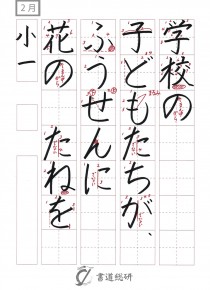 2月
学校の
子どもたちが、
ふうせんに
花の たねを
小一
書道総研